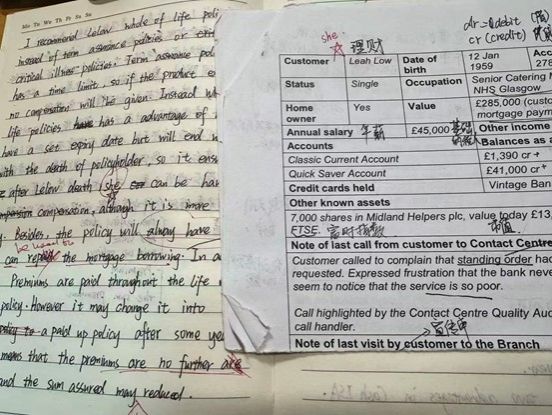 Mo Tu We Th Fr Sa Su
I recommend Below whole of life poli
Instead of term assurance policies or
critical illness policies. Term assurance pol
has a time limit, so if the product e
no compensation will be given. Instead wh
life policies have has a advantage of
have a set expiry date but will end w
with the death of policyholder, so it ens
after Below death she can be han
compensation, although it is more
Besides, the policy will alway have
be used to
can repay the mortgage borrowing. In a
Premiums are paid throughout the life
policy. However it may change it into
policy to a paid up policy after some ye
means that the premiums are no further are
and the sum assured may reduced.
she
理财
dr = debit
cr (credit)
Customer Leah Low Date of birth 12 Jan 1959 Acc 278
Status Single Occupation Senior Catering NHS Glasgow
Home owner Yes Value £285,000 (cust mortgage paym
Annual salary 年薪 £45,000 Other income
Accounts Balances as a
Classic Current Account £1,390 cr
Quick Saver Account £41,000 cr
Credit cards held Vintage Ban
Other known assets
7,000 shares in Midland Helpers plc, value today £13
FTSE. 富时指数 市值
Note of last call from customer to Contact Centre
Customer called to complain that standing order had
requested. Expressed frustration that the bank neve
seem to notice that the service is so poor.
Call highlighted by the Contact Centre Quality Au
call handler.
Note of last visit by customer to the Branch